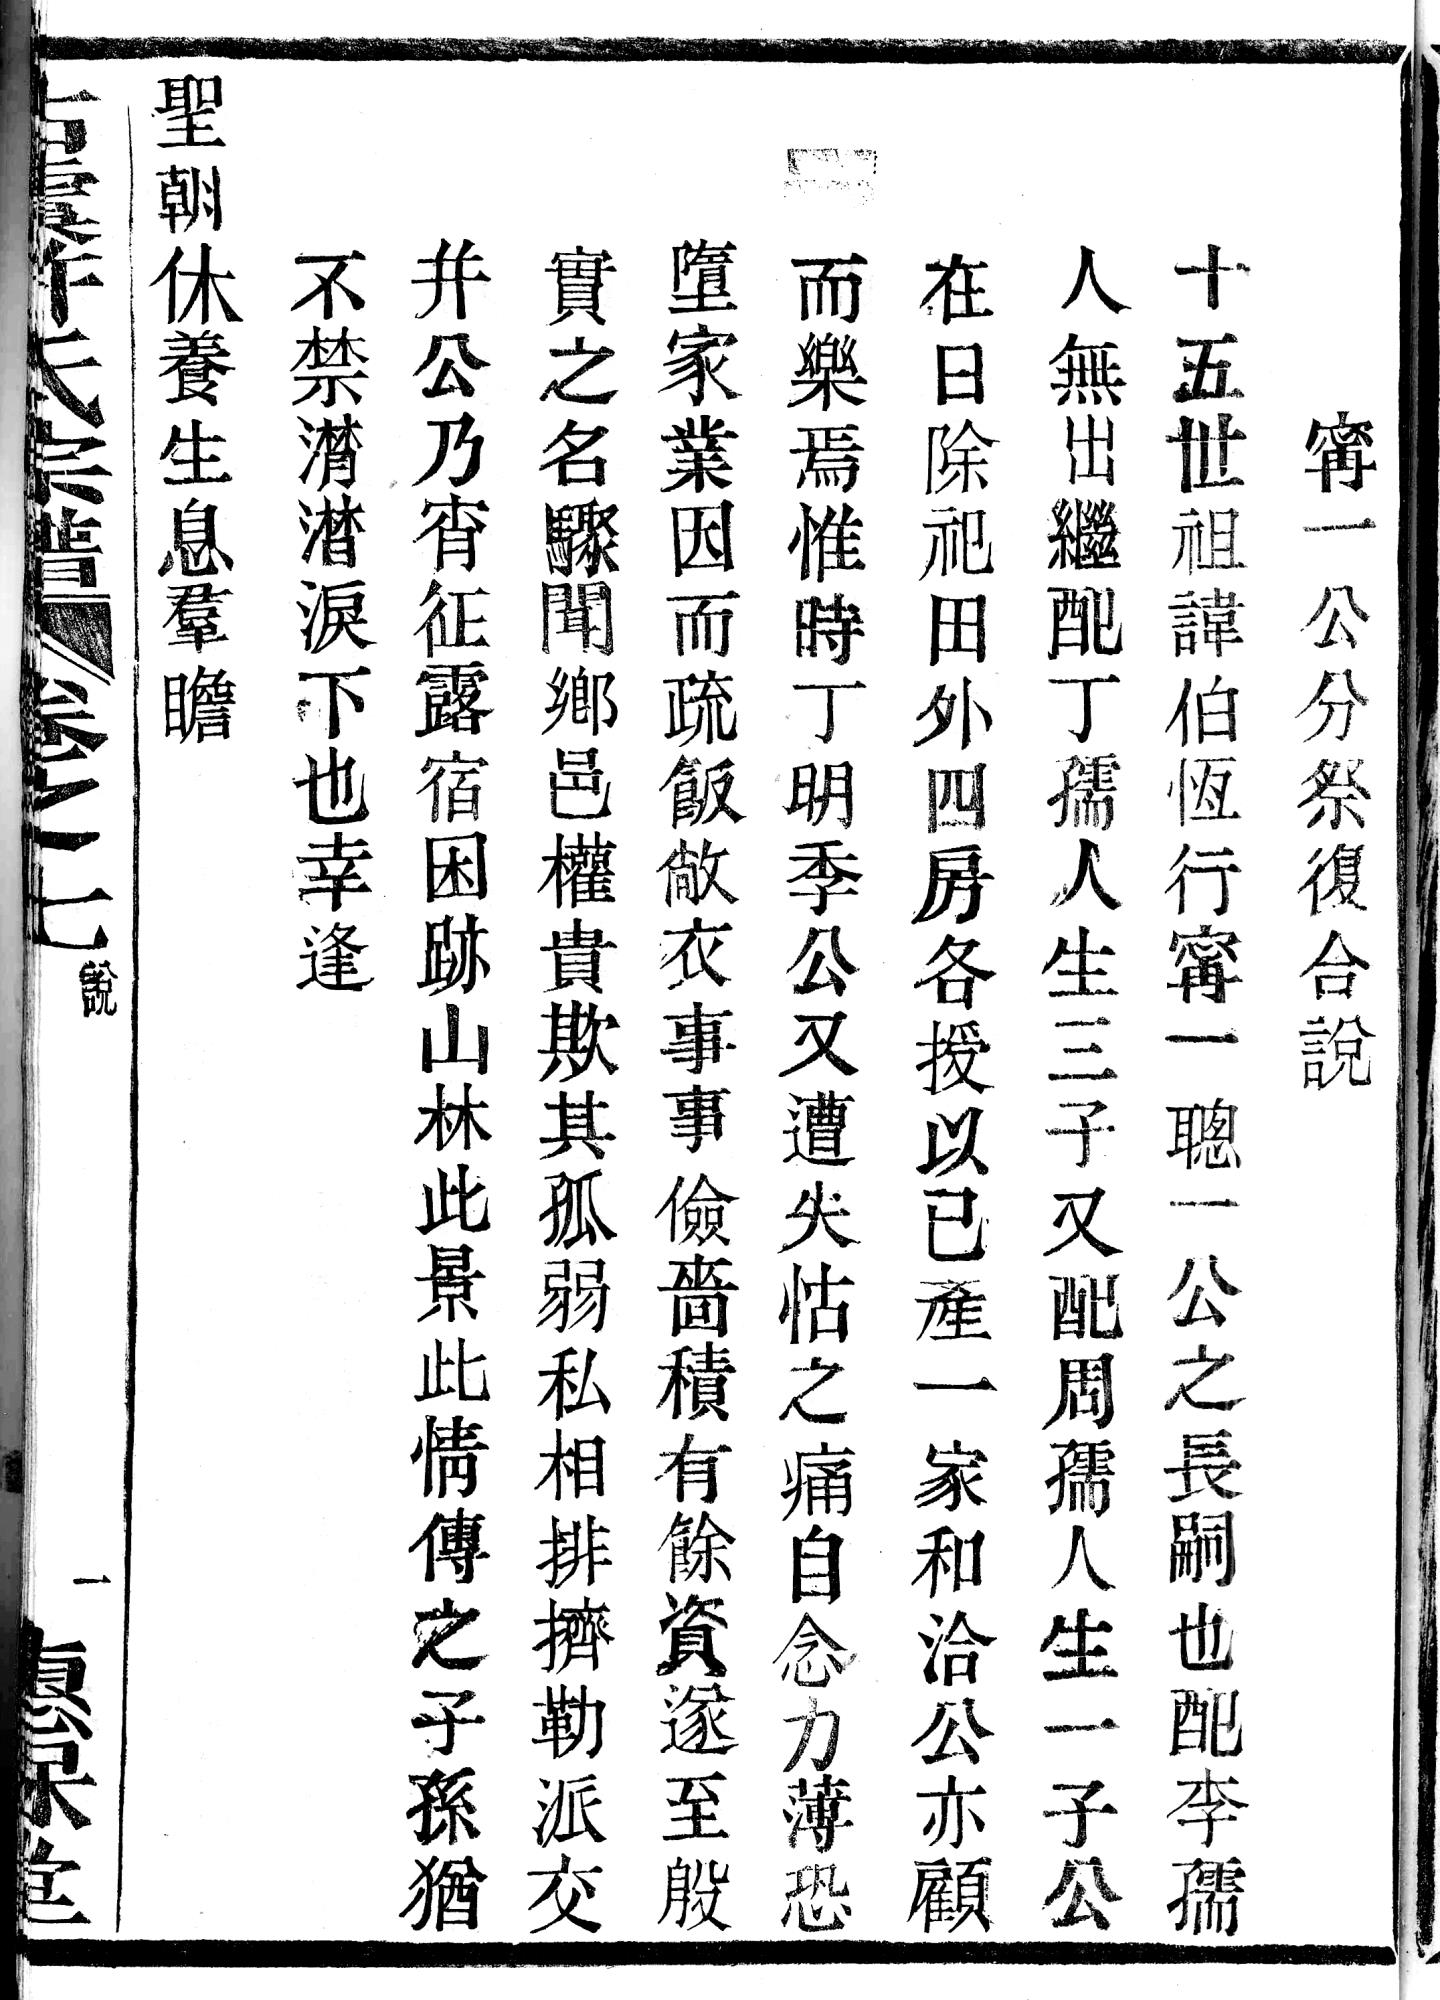 甯一公分祭復合說
十五世祖諱伯恆行甯一聰一公之長嗣也配李孺
人無出繼配丁孺人生三子又配周孺人生一子公
在日除祀田外四房各授以已產一家和洽公亦顧
而樂焉惟時丁明季公又遭失怙之痛自念力薄恐
墮家業因而疏飯敝衣事事儉嗇積有餘資遂至殷
實之名驟聞鄉邑權貴欺其孤弱私相排擠勒派交
并公乃宵征露宿困跡山林此景此情傳之子孫猶
不禁潸潸淚下也幸逢
聖朝休養生息羣瞻
氏宗譜 卷之七 說 一